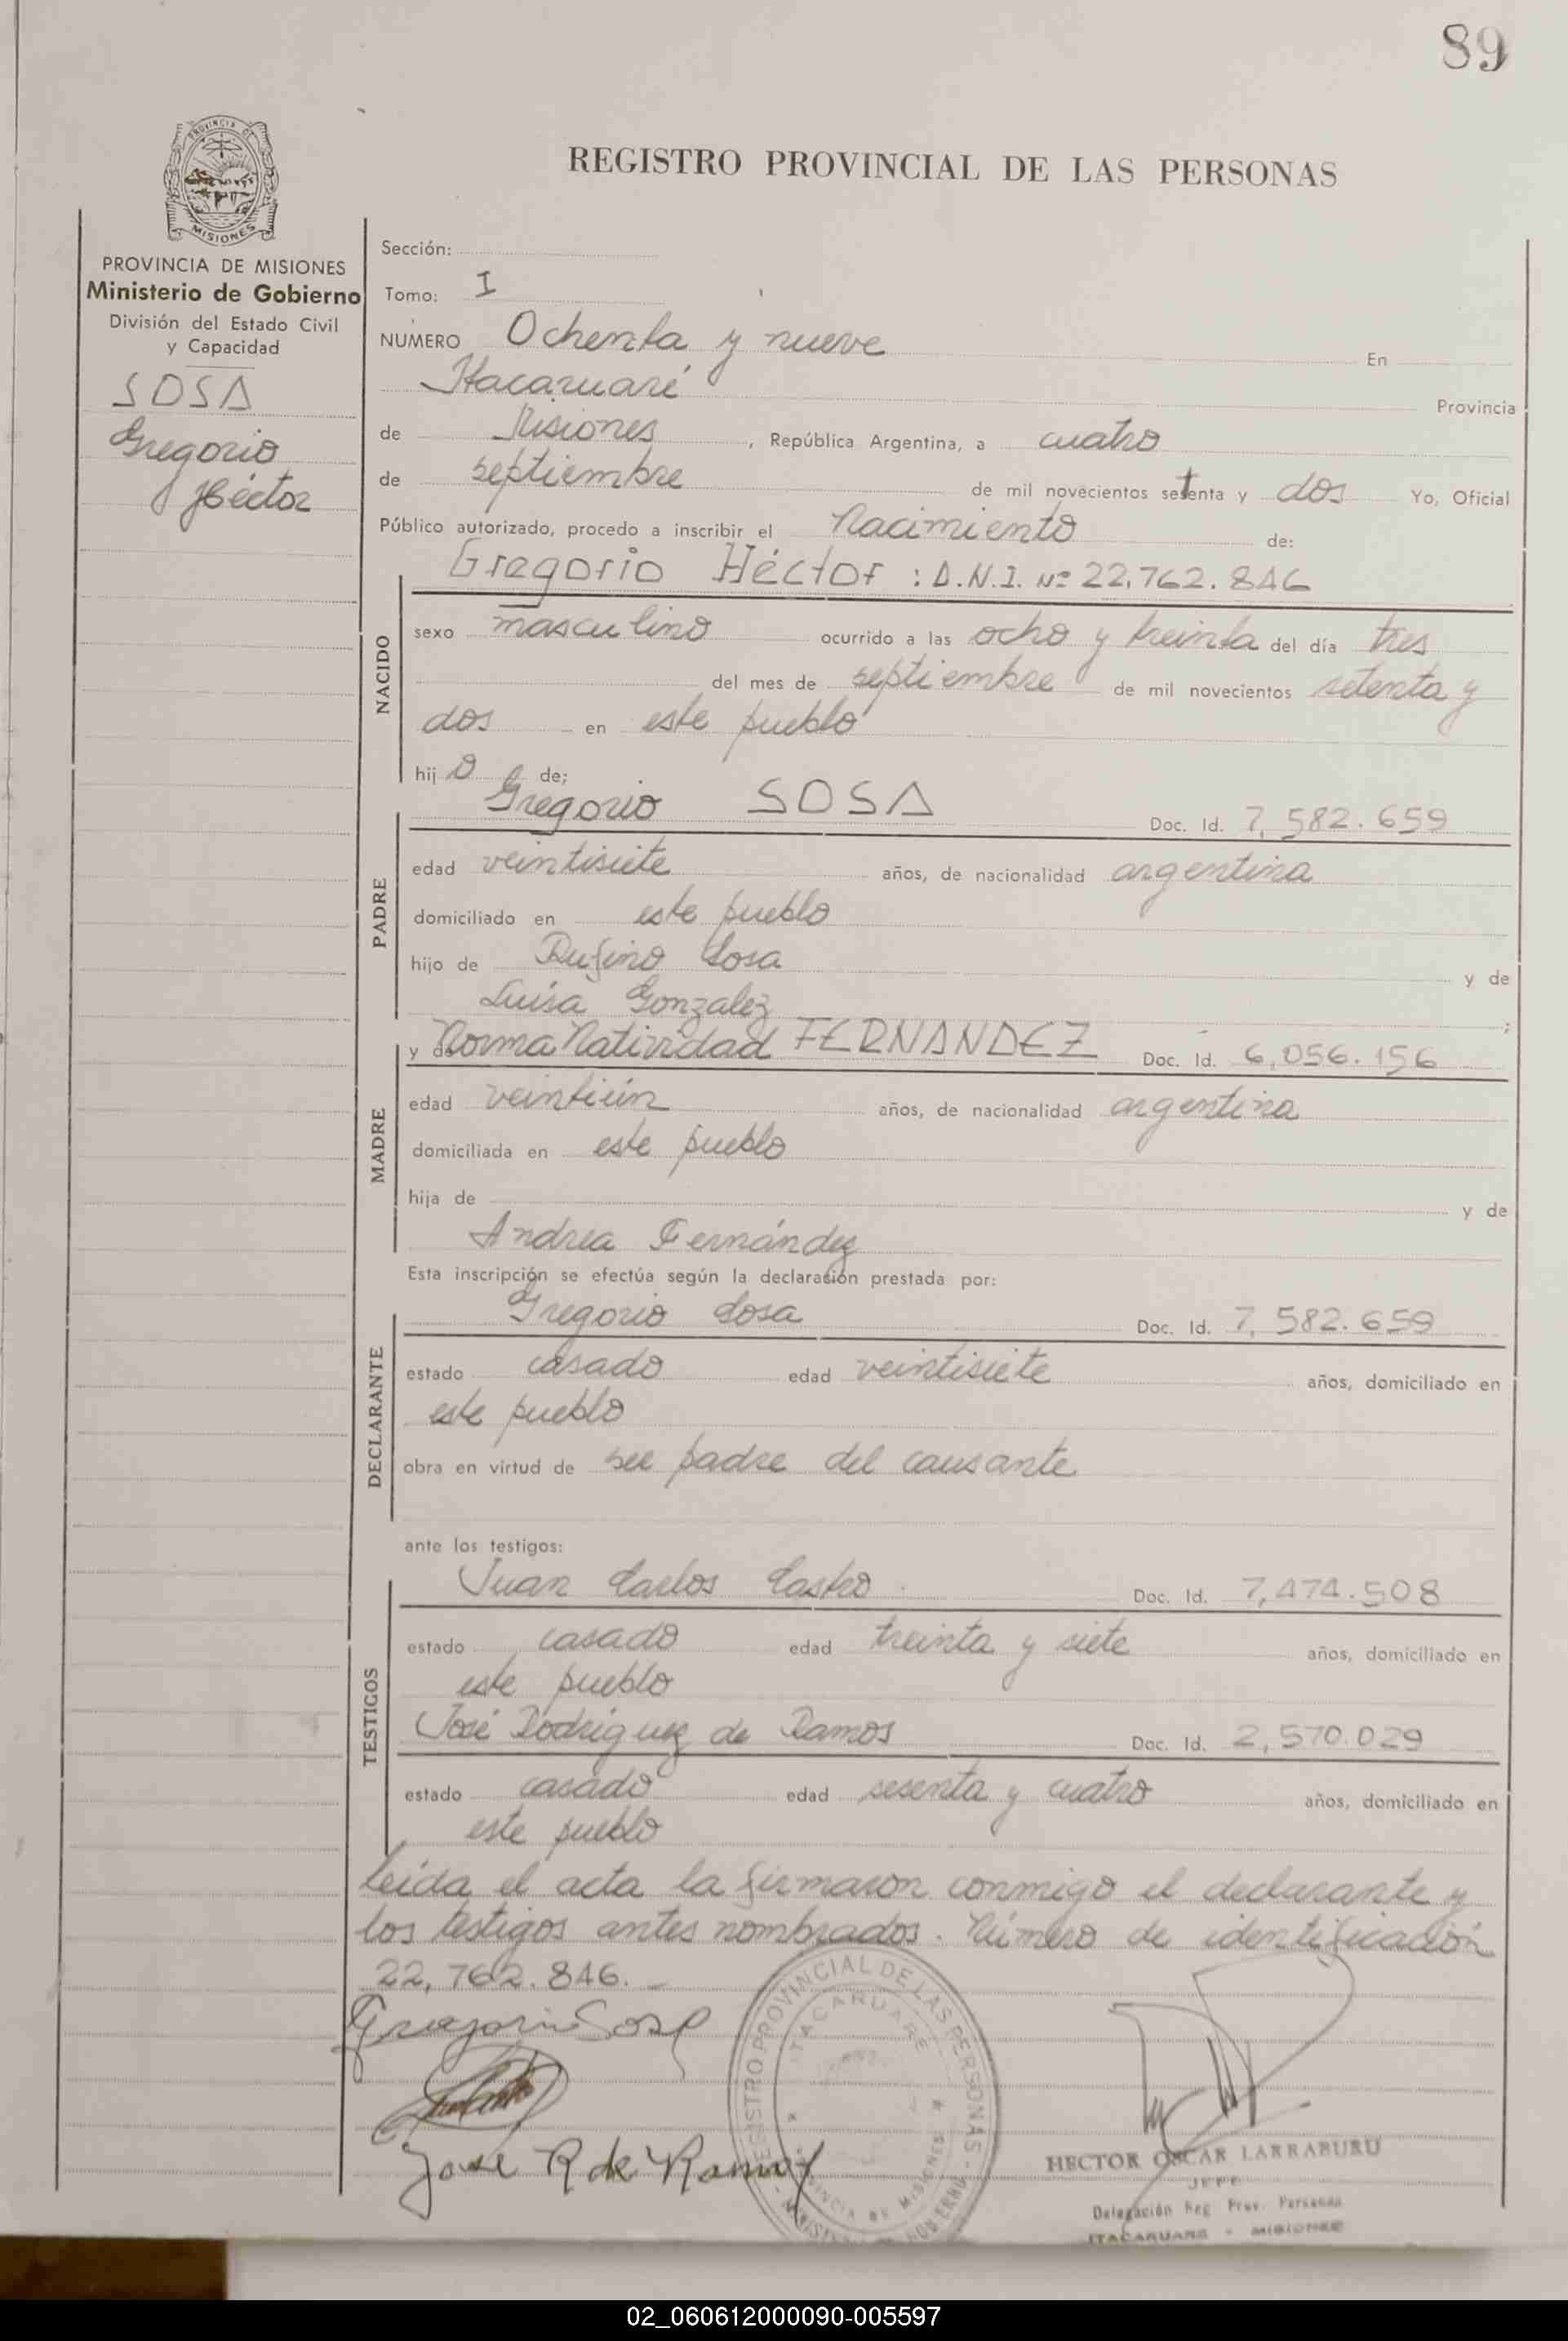 89
PROVINCIA DE
MISIONES
REGISTRO PROVINCIAL DE LAS PERSONAS
PROVINCIA DE MISIONES
Ministerio de Gobierno
División del Estado Civil
y Capacidad
SOSA
Gregorio
Héctor
Sección:
Tomo: I
NÚMERO Ochenta y nueve En
Itacaruaré Provincia
de Misiones, República Argentina, a cuatro
de septiembre de mil novecientos setenta y dos Yo, Oficial
Público autorizado, procedo a inscribir el Nacimiento de:
Gregorio Héctor : D.N.I. Nº 22.762.846
NACIDO
sexo masculino ocurrido a las ocho y treinta del día tres
del mes de septiembre de mil novecientos setenta y
dos en este pueblo
hijo de;
PADRE
Gregorio SOSA Doc. Id. 7,582.659
edad veintisiete años, de nacionalidad argentina
domiciliado en este pueblo
hijo de Rufino Sosa y de
Luisa Gonzalez ;
MADRE
y de Norma Natividad FERNANDEZ Doc. Id. 6,056.156
edad veintiún años, de nacionalidad argentina
domiciliada en este pueblo
hija de y de
Andrea Fernández
Esta inscripción se efectúa según la declaración prestada por:
DECLARANTE
Gregorio Sosa Doc. Id. 7,582.659
estado casado edad veintisiete años, domiciliado en
este pueblo
obra en virtud de ser padre del causante
ante los testigos:
TESTIGOS
Juan Carlos Castro Doc. Id. 7,474.508
estado casado edad treinta y siete años, domiciliado en
este pueblo
José Rodríguez de Ramos Doc. Id. 2,570.029
estado casado edad sesenta y cuatro años, domiciliado en
este pueblo
leída el acta la firmaron conmigo el declarante y
los testigos antes nombrados. Número de identificación
22,762.846.-
Gregorio Sosa
José R de Ramos
REGISTRO PROVINCIAL DE LAS PERSONAS
ITACARUARE
HECTOR OSCAR LARRABURU
JEFE
Delegación Reg. Prov. Personas
ITACARUARE - MISIONES
02_060612000090-005597